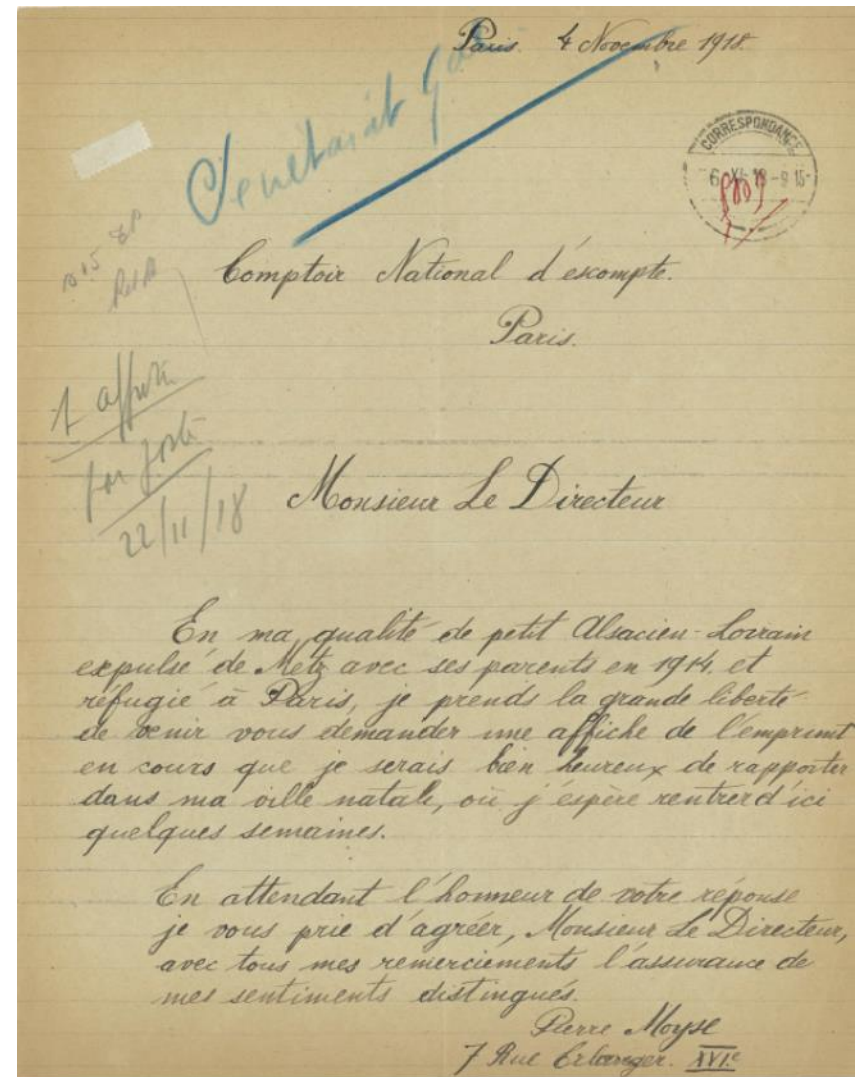 Paris. 4 Novembre 1918.
Secrétariat Gal
CORRESPONDANCE
6 XI 18 - 9 15
Comptoir National d'éscompte.
Paris.
1 affiche
par poste
22/11/18
Monsieur Le Directeur
En ma qualité de petit Alsacien-Lorrain
expulsé de Metz avec ses parents en 1914. et
réfugié à Paris, je prends la grande liberté
de venir vous demander une affiche de l'emprunt
en cours que je serais bien heureux de rapporter
dans ma ville natale, où j'éspère rentrer d'ici
quelques semaines.
En attendant l'honneur de votre réponse
je vous prie d'agréer, Monsieur Le Directeur,
avec tous mes remerciements l'assurance de
mes sentiments distingués.
Pierre Moyse
7 Rue Erlanger. XVIe